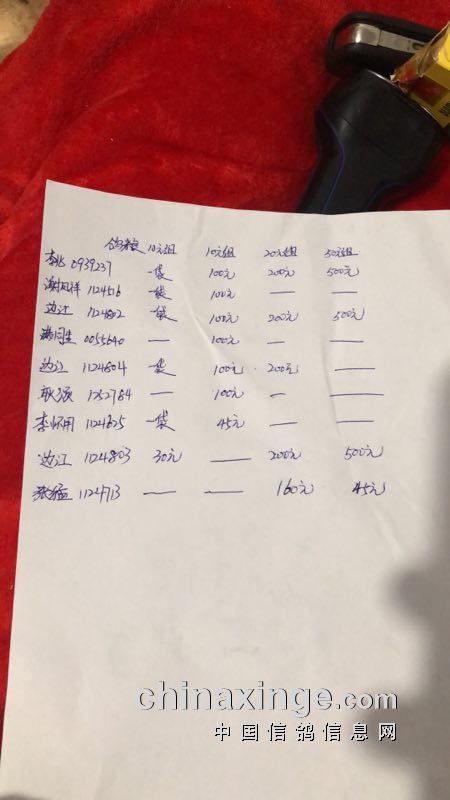 鸽粮10元组 10元组 20元组 50元组
李兆 0939237 一袋 100元 200元 500元
谢凤祥 1124516 一袋 100元 — —
边江 1124802 一袋 100元 200元 500元
0055640 — 100元 — —
边江 1124804 一袋 100元 200元 —
耿颂 1252784 — 100元 — —
李怀用 1124625 一袋 45元 — —
边江 1124803 30元 — 200元 500元
张猛 1124713 — — 160元 45元
chinaxinge.com
中国信鸽信息网